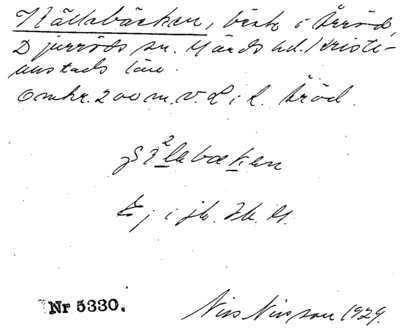 Källebäcken, bäck i Åröd,
Djurröds sn. Gärds hd. Kristi-
anstads län.
Omkr. 200 m. v. L. i. l. Åröd.
Ej i jb. Sk. U.
Nr 5330.
Nils Nilsson 1929.